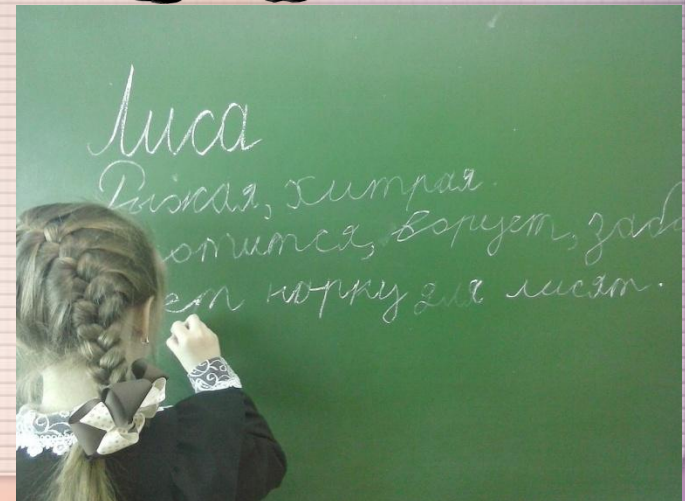 Лиса
Рыжая, хитрая.
отится, ворует, заб
ет норку для лисят.